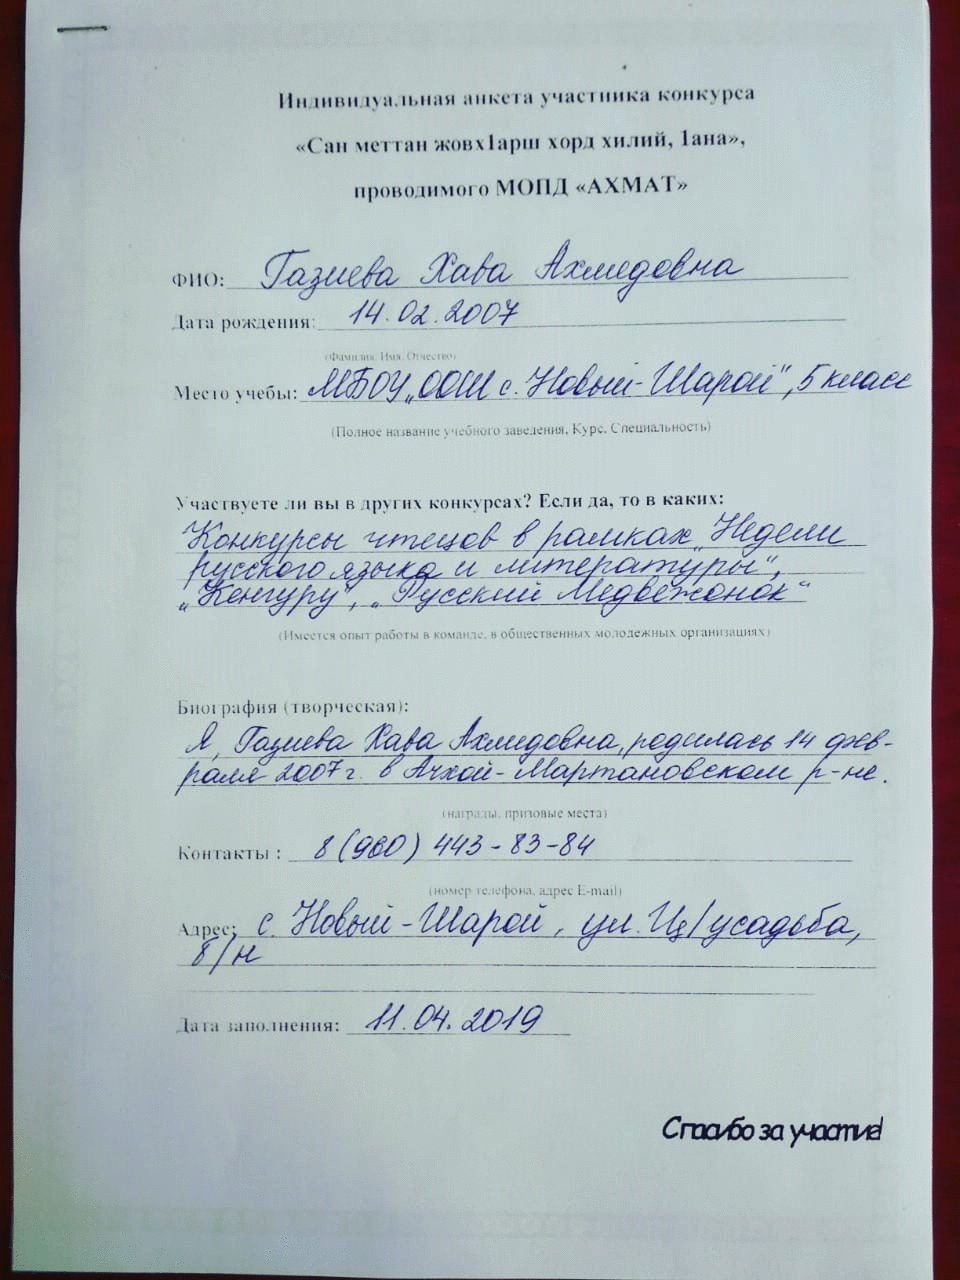 Индивидуальная анкета участника конкурса
«Сан меттан жовх1арш хорд хилий, 1ана»,
проводимого МОПД «АХМАТ»
ФИО: Газиева Хава Ахмедовна
Дата рождения: 14.02.2007
(Фамилия, Имя, Отчество)
Место учебы: МБОУ „ООШ с. Новый-Шарой", 5 класс
(Полное название учебного заведения, Курс, Специальность)
Участвуете ли вы в других конкурсах? Если да, то в каких:
Конкурсы чтецов в рамках „Недели
русского языка и литературы",
„Кенгуру", „Русский Медвежонок"
(Имеется опыт работы в команде, в общественных молодежных организациях)
Биография (творческая):
Я, Газиева Хава Ахмедовна, родилась 14 фев-
раля 2007 г. в Ачхой-Мартановском р-не.
(награды, призовые места)
Контакты : 8 (960) 443-83-84
(номер телефона, адрес E-mail)
Адрес: с. Новый-Шарой, ул. Ц/усадьба,
б/н
Дата заполнения: 11.04.2019
Спасибо за участие!